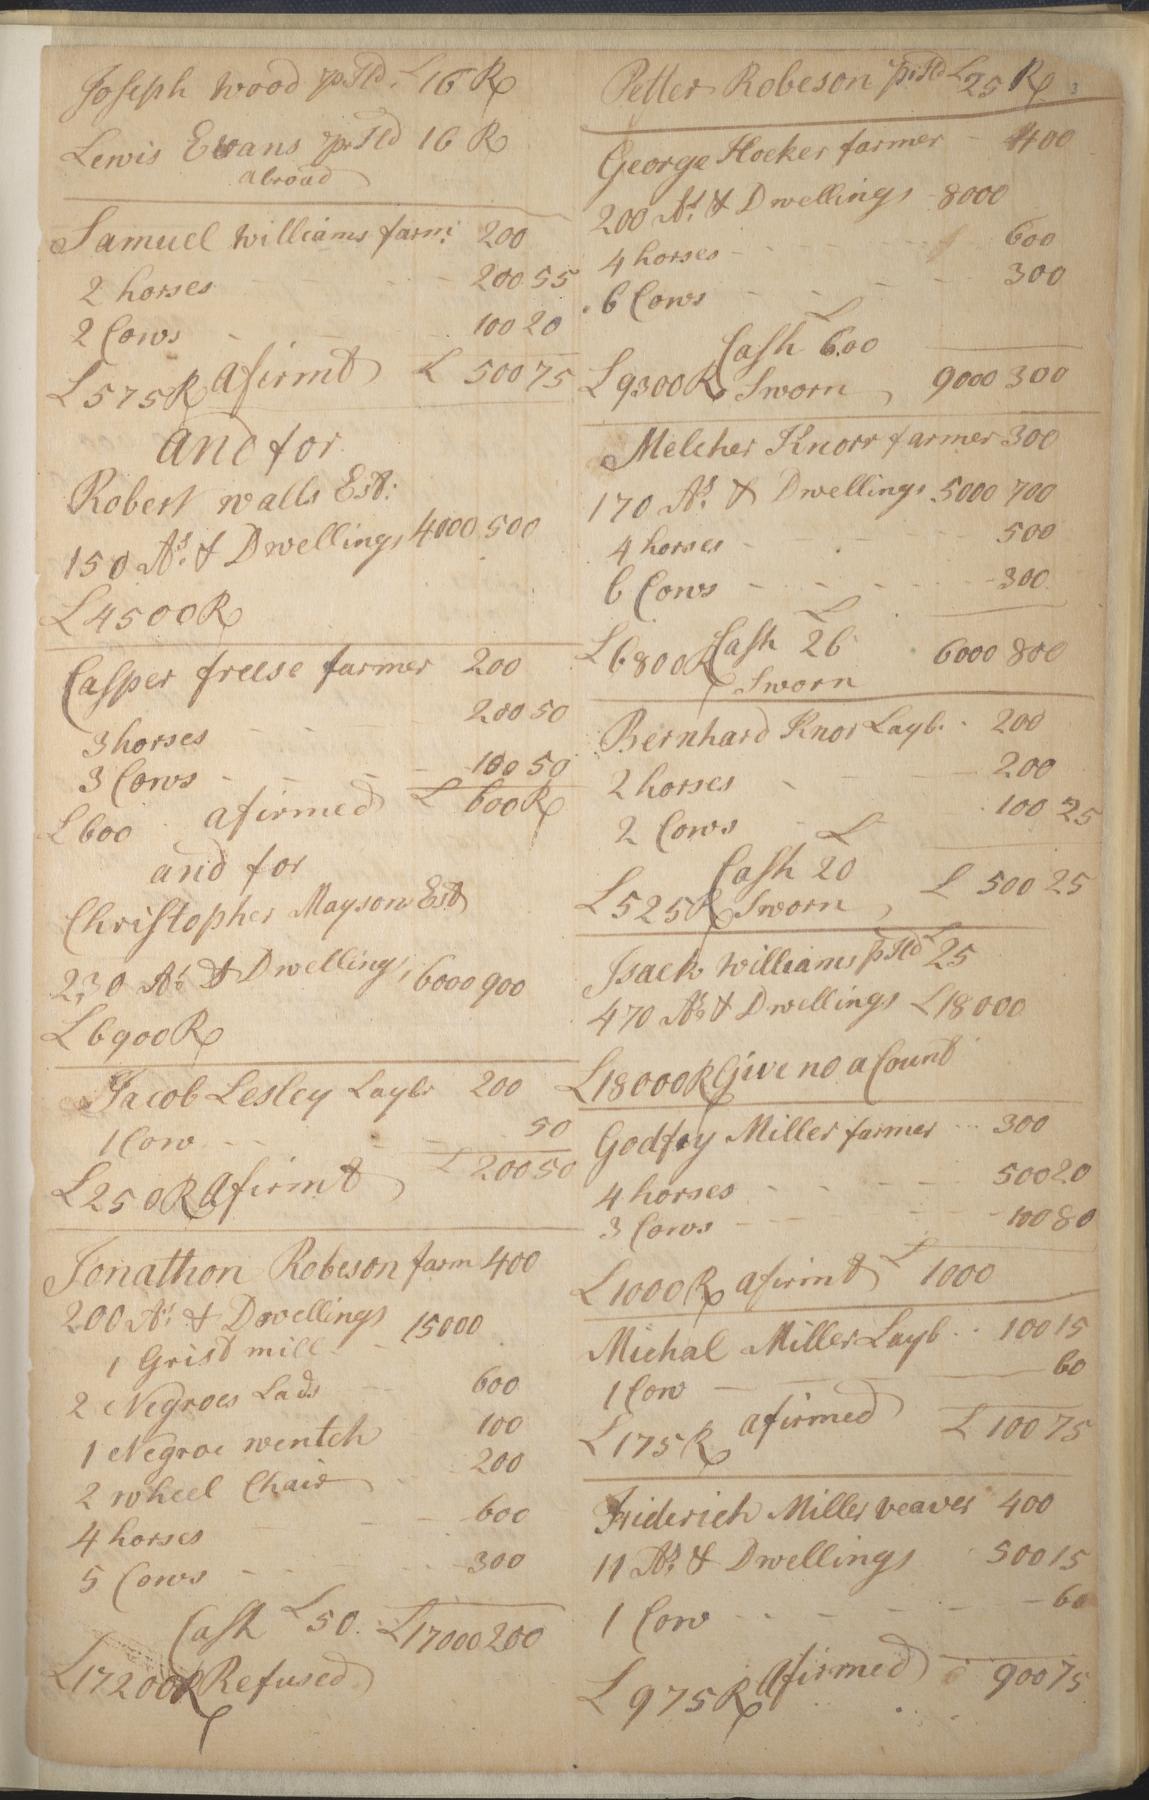 Joseph Wood p Tld. £16 R
Lewis Evans p Tld 16 R
abroad
Samuel Williams farm: 200
2 horses 200 55
2 Cows 100 20
£575 R Afirmd £ 500 75
And for
Robert walls Est:
150 As. & Dwellings 4000 500
£4500 R
Casper freese farmer 200
3 horses 200 50
3 Cows 100 50
£600 afirmed £ 600 R
and for
Christopher Mayson Est
230 As & Dwellings 6000 900
£6900 R
Jacob Lesley Laybr 200
1 Cow 50
£250 R Afirmd £ 200 50
Jonathon Robeson farm 400
200 As & Dwellings 15000
1 Grist mill
2 Negroes Lads 600
1 Negroe wentch 100
2 wheel Chair 200
4 horses 600
5 Cows 300
Cash £50. £17000 200
£17200 R Refused
Petter Robeson p Tld £25 R 3
George Hocker farmer 400
200 As. & Dwellings 8000
4 horses 600
6 Cows 300
£
Cash 600
£9300 R Sworn 9000 300
Melcher Knorr farmer 300
170 As. & Dwellings 5000 700
4 horses 500
6 Cows 300
£
£6800 R Cash 26 6000 800
Sworn
Bernhard Knor Layb. 200
2 horses 200
2 Cows 100 25
£
Cash 20
£525 R Sworn £ 500 25
Isack Williams p Tld £25
470 As & Dwellings £18000
£18000 R Give no a Count
Godfry Miller farmer 300
4 horses 500 20
3 Cows 100 80
£1000 R afirmd £ 1000
Michal Miller Layb. 100 15
1 Cow 60
£175 R afirmed £ 100 75
Friderich Miller weaver 400
11 As. & Dwellings 500 15
1 Cow 60
£975 R Afirmed 900 75